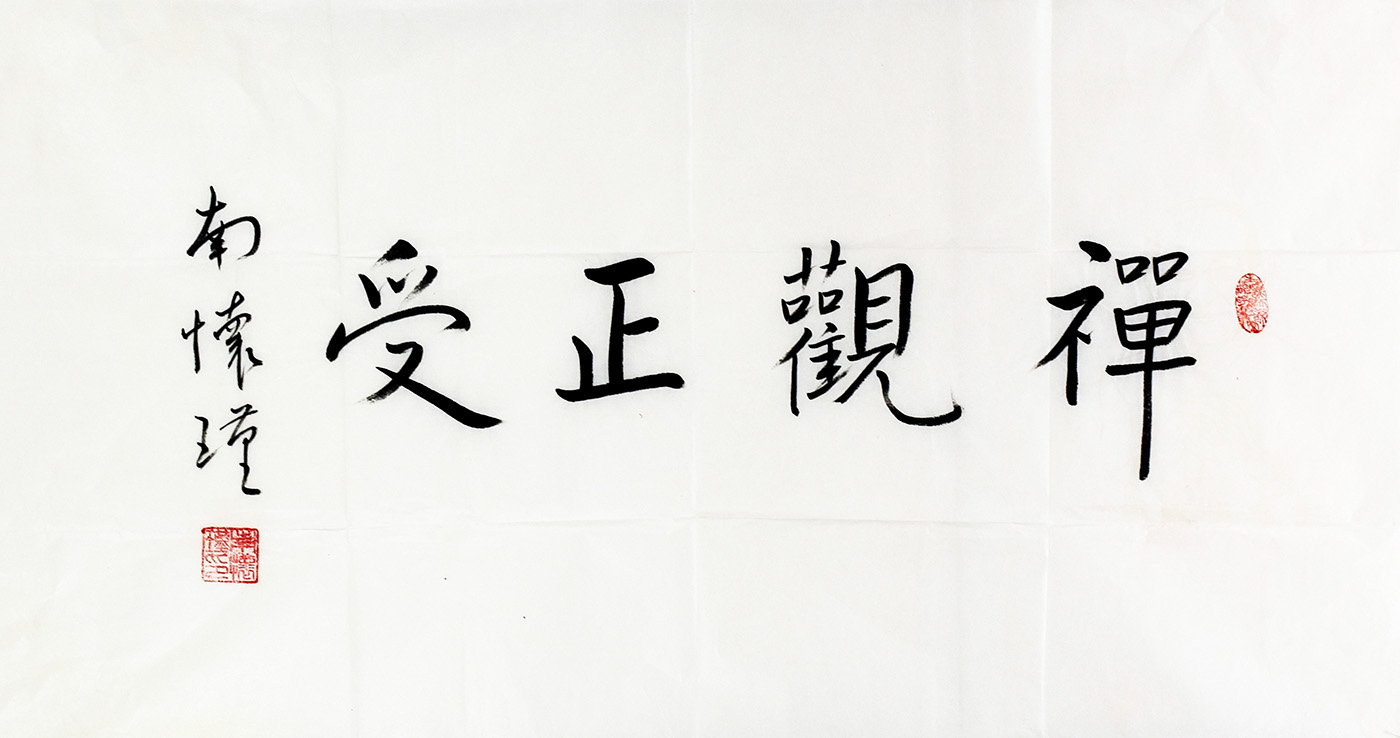 禪觀正受
南懷瑾